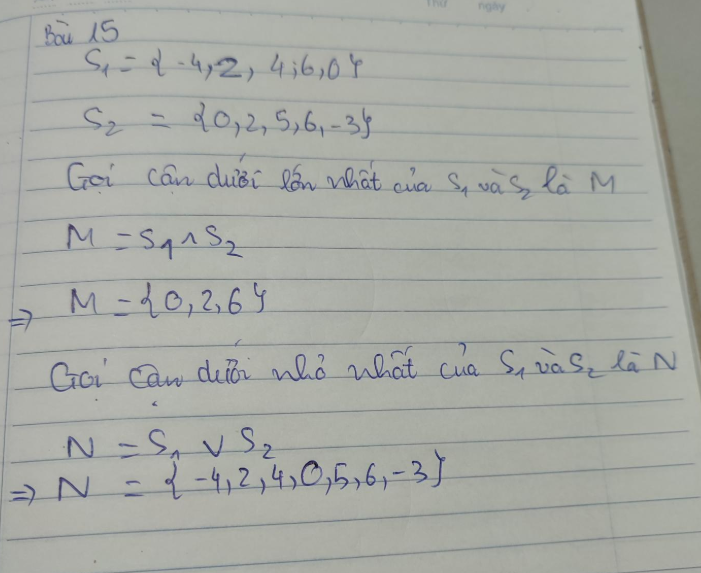 Thứ ngày
Bài 15
S₁ = {-4, 2, 4; 6, 0}
S₂ = {0, 2, 5, 6, -3}
Gọi cận dưới lớn nhất của S₁ và S₂ là M
M = S₁ ∧ S₂
⇒ M = {0, 2, 6}
Gọi cận dưới nhỏ nhất của S₁ và S₂ là N
N = S₁ ∨ S₂
⇒ N = {-4, 2, 4, 0, 5, 6, -3}